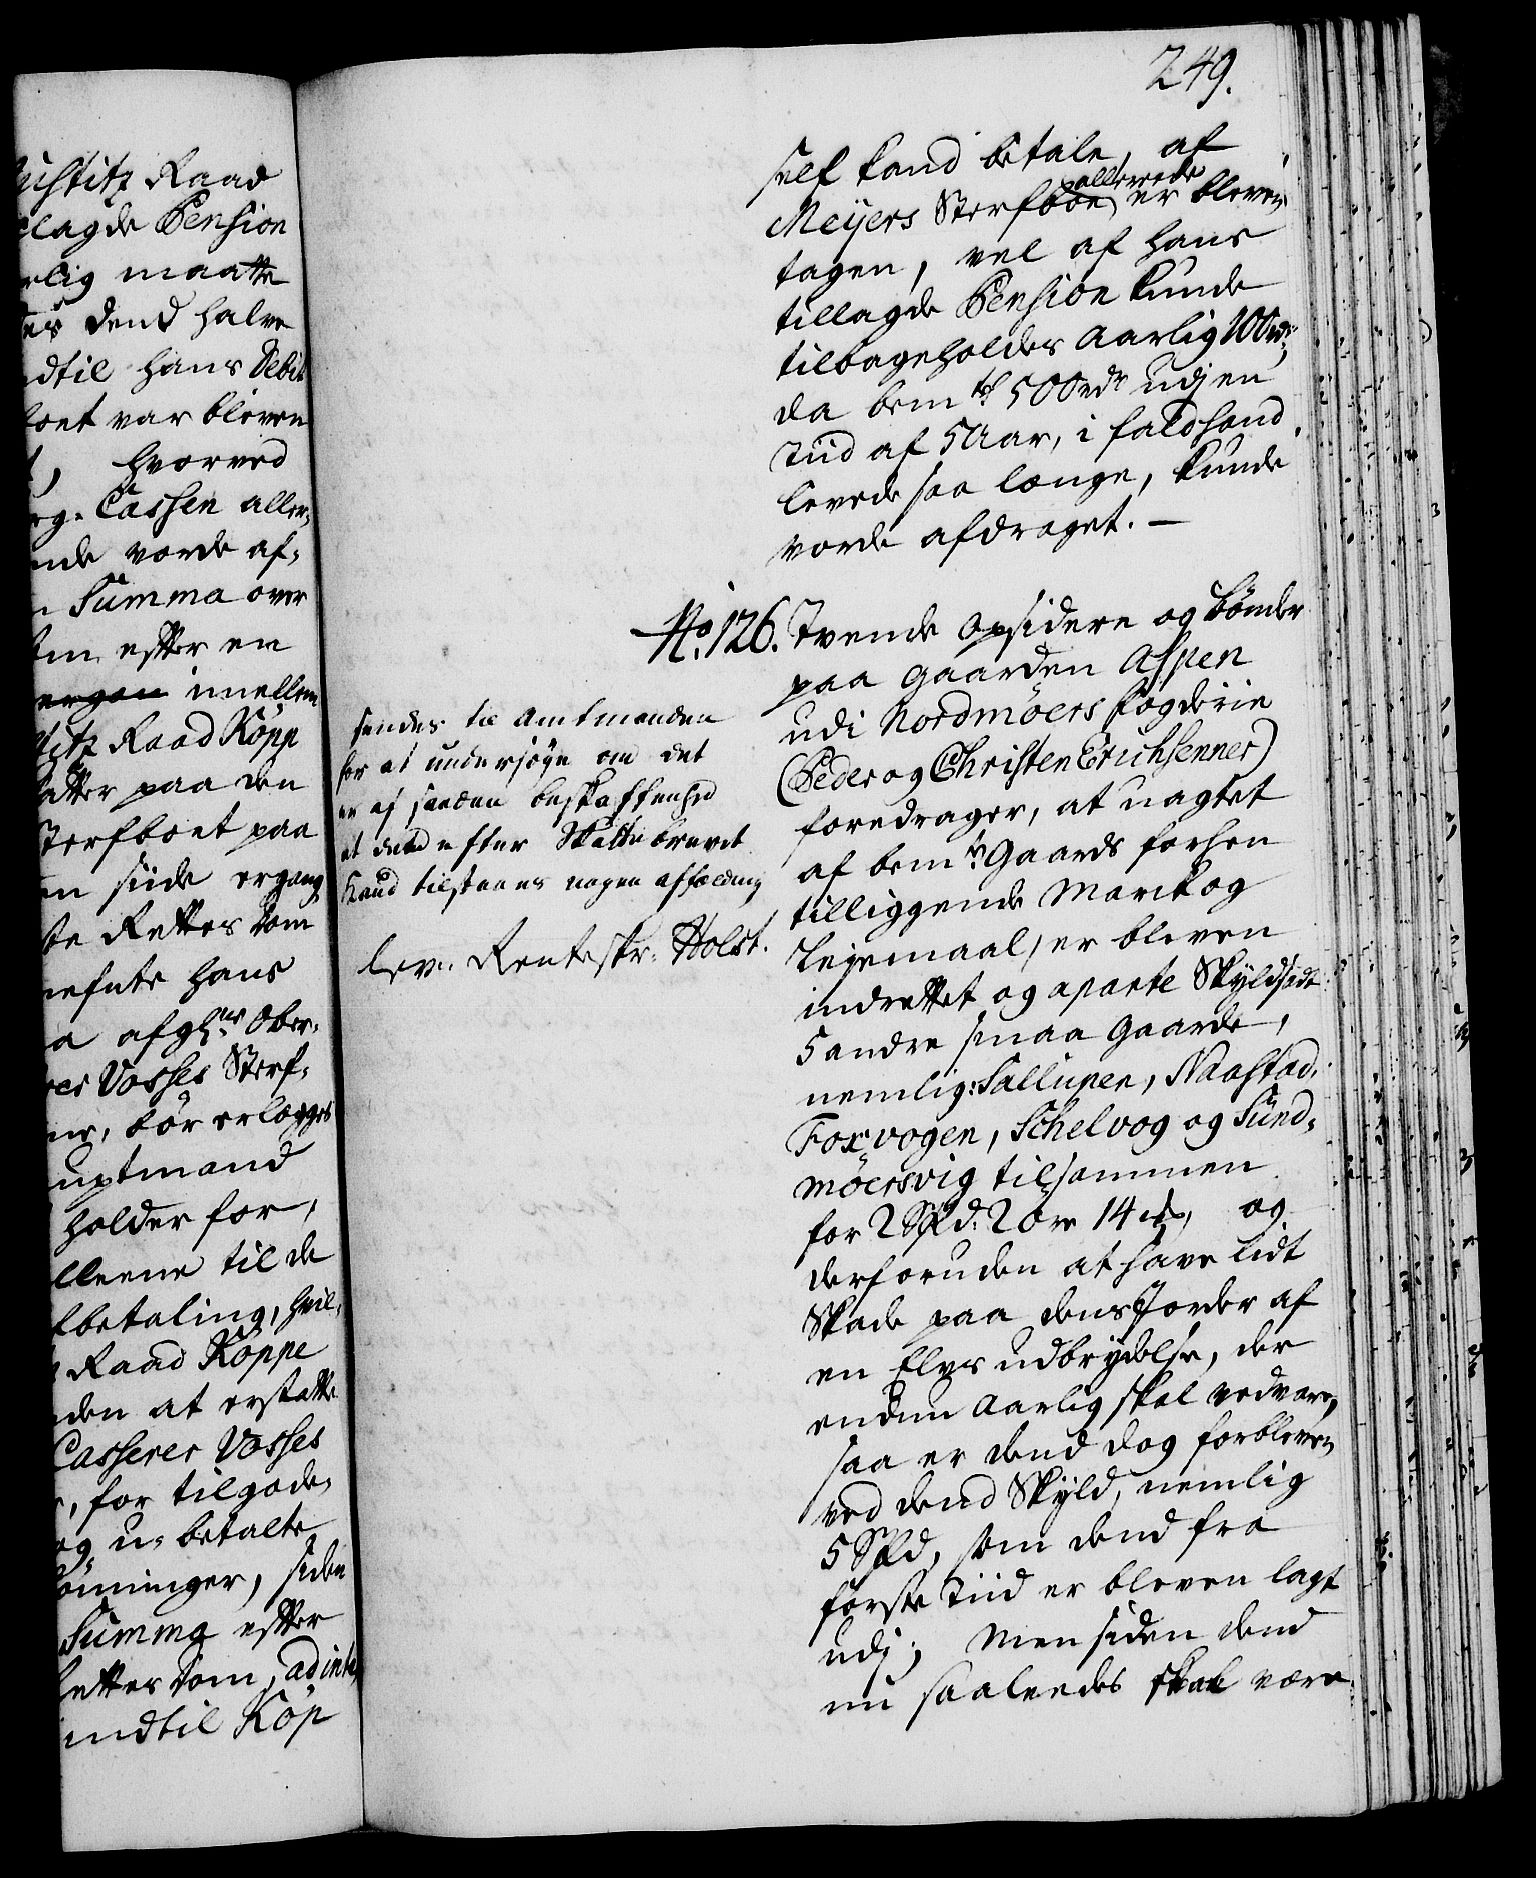 249.
justitz Raad
lagde Pension
rlig maatte
es dend halve
dtil hans Debit
boet var bleven
hvorved
rg. Cassen aller-
nde vorde af-
Summa over
efter en
ergan imellem
titz Raad Köpp
atter paa den
Sterfboet paa
en side ergang
te Rettes Dom
nefnte hans
a afgl:ne Ober-
Vosses Sterf-
ne, bør erlegges
uptmand
holder for,
lleene til de
fbetaling, hvil-
Raad Köppe
den at erstatte
Casserer Vosses
, for tilgode-
og u-betalte
ønninger, siden
Summa efter
Rettes Dom, ad inte
indtil Köp
self kand betale, af
Meyers Sterfboe allerede er bleven
tagen, vel af hans
tillagde Pension kunde
tilbageholdes aarlig 100 rdr.
da bem.te 500 rdr udj en
Tiid af 5 Aar, i fald hand
levede saa længe, kunde
vorde afdraget. —
No. 126. Tvende Opsidere og bønder
paa gaarden Aspen
udi Nordmöers fogderie
(Peder og Christen Erichsenner)
foredrager, at uagtet
af bem.te Gaards forhen
tilliggende Marck og
Leyemaal, er bleven
indrettet og aparte Skyldsadt
5 andre smaa gaarde,
nemlig: Sallupen, Naastad,
Foxvogen, Schelvog og Sund-
möersvig tilsammen
for 2 Spd. 2 Ore 14 og
derforuden at have lidt
Skade paa dens Jorder af
en Elvs udbrydelse, der
endnu aarlig skal vedvare,
saa er dend dog forbleven
ved dend Skyld, nemlig
5 Spd, som dend fra
første Tiid er bleven lagt
udj; Men siden dend
nu saaledes skal være
sendes til Amtmanden
for at undersøge om det
er af saadan beskaffenhed
at det efter Skattebrevet
kand tilstaaes nogen affælding
lev. Renteskr. Holst.